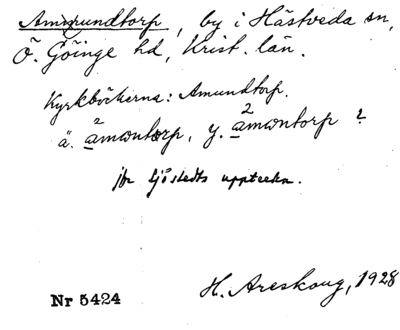 Ammundtorp, by i Hästveda sn,
Ö. Göinge hd, Krist. län.
Kyrkböckerna: Amundtorp.
ä. ²amontorp, y. ²amontorp ?
jfr Sjöstedts uppteckn.
H. Areskoug, 1928
Nr 5424